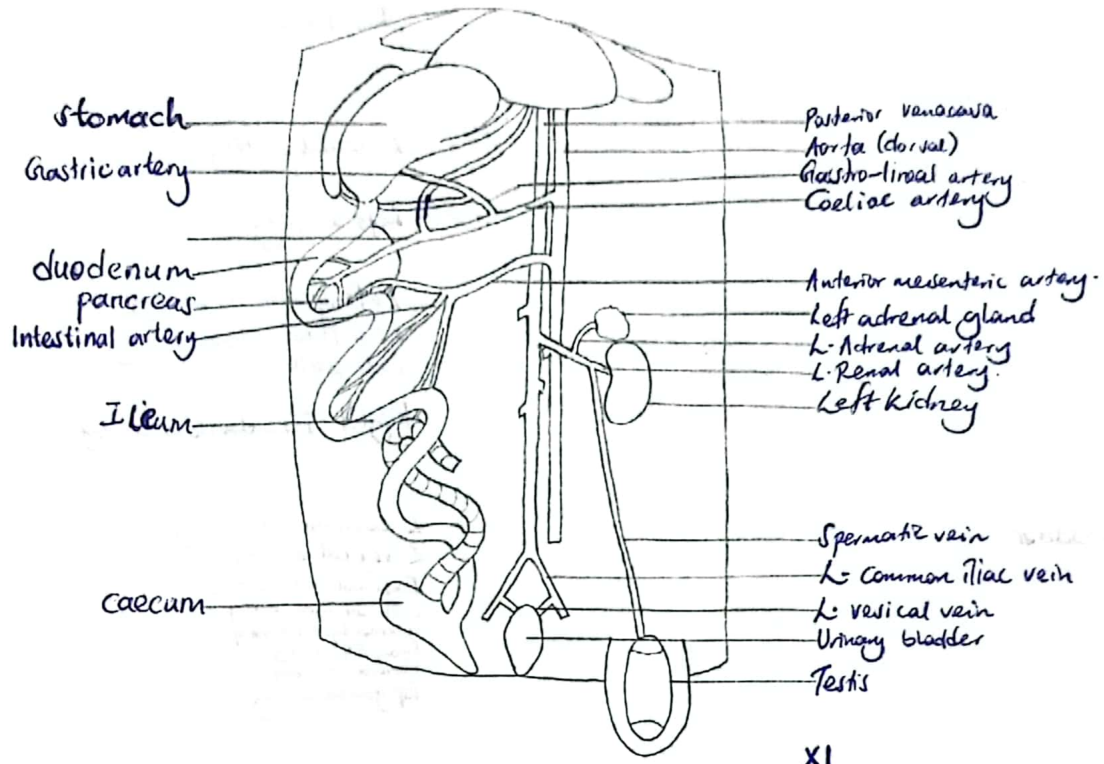 stomach
Gastric artery
duodenum
pancreas
Intestinal artery
Ileum
caecum
Posterior venacava
Aorta (dorsal)
Gasstro-lineal artery
Coeliac artery
Anterior mesenteric artery.
Left adrenal gland
L. Adrenal artery
L. Renal artery.
Left kidney
Spermatic vein
L. Common iliac vein
L. vesical vein
Urinary bladder
Testis
X1